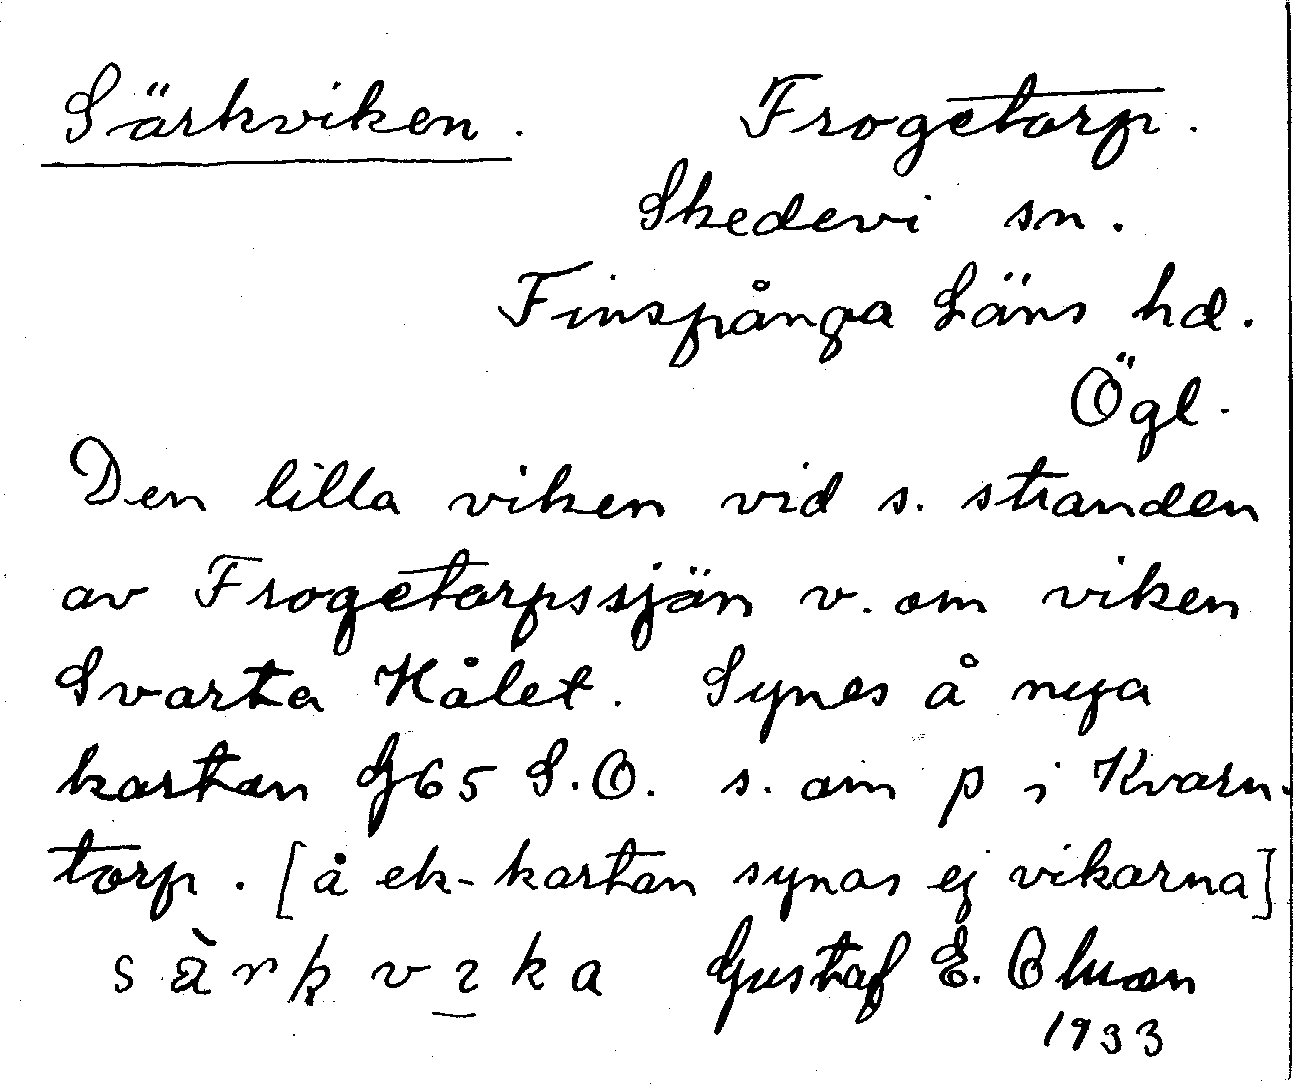 Särkviken. Frogetorp.
Skedevi sn.
Finspånga Läns hd.
Ögl.
Den lilla viken vid s. stranden
av Frogetorpssjön v. om viken
Svarta Hålet. Synes å nya
kartan G65 S.O. s. om p i Kvarn-
torp. [å ek-kartan synas ej vikarna]
Gustaf E. Olsson
1933